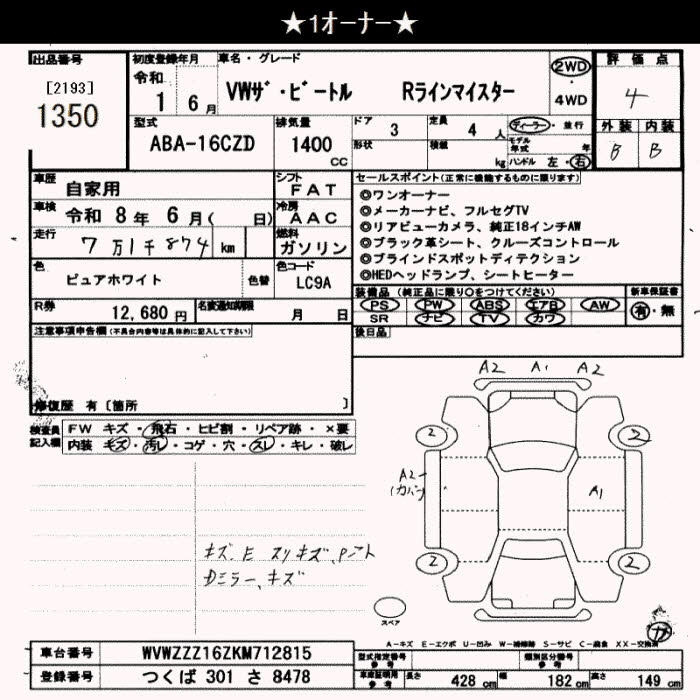 ★1オーナー★
出品番号 初度登録年月 車名・グレード 評価点
[2193] 令和 1 6月 VWザ・ビートル Rラインマイスター 2WD 4
1350 4WD
型式 排気量 ドア 3 定員 4 人 ディーラー・並行 外装 内装
ABA-16CZD 1400 CC 形状 積載 kg モデル年式 年 B B
ハンドル 左・右
車歴 自家用 シフト FAT セールスポイント(正常に機能するものに限り)
車検 令和 8年 6月( 日) 冷房 AAC ◎ワンオーナー
走行 7万1千874 km 燃料 ガソリン ◎メーカーナビ、フルセグTV
◎リアビューカメラ、純正18インチAW
◎ブラック革シート、クルーズコントロール
◎ブラインドスポットディテクション
◎HEDヘッドランプ、シートヒーター
色 ピュアホワイト 色替 色コード LC9A
装備品(純正品に限り○をつけてください) 新車保証書
R券 12,680円 名変通知期限 月 日 PS PW ABS エアB AW 有・無
SR ナビ TV カワ
注意事項申告欄(不具合内容等は具体的に記入して下さい) 後日品
修復歴 有〔箇所 〕
検査員記入欄 FW キズ・飛石・ヒビ割・リペア跡・×要
内装 キズ・汚レ・コゲ・穴・スレ・キレ・破レ
A2 A1 A2
2 2
A2 A1
(カバー)
2 2
キズ、E スリキズ、Pシフト
Dミラー、キズ
スペア
A-キズ E-エクボ U-凹み W-補修跡 S-サビ C-腐食 XX-交換済
車台番号 WVWZZZ16ZKM712815 型式指定番号 参考 類別区分番号 参考
登録番号 つくば 301 さ 8478 車庫証明用 参考 長さ 428 cm 幅 182 cm 高さ 149 cm